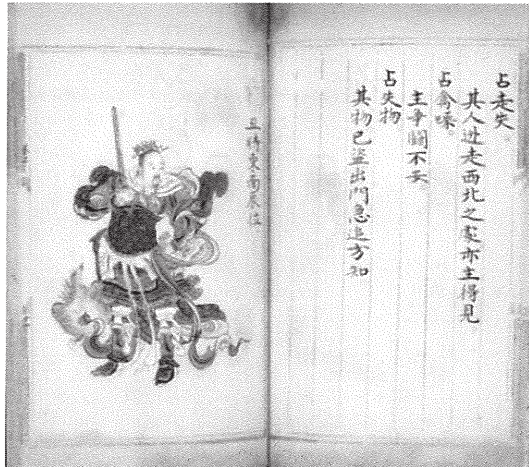 占走失
其人逃走西北之家亦主得見
占禽噪
主爭鬪不安
占失物
其物已盜出門急追方知
丑將東南辰位